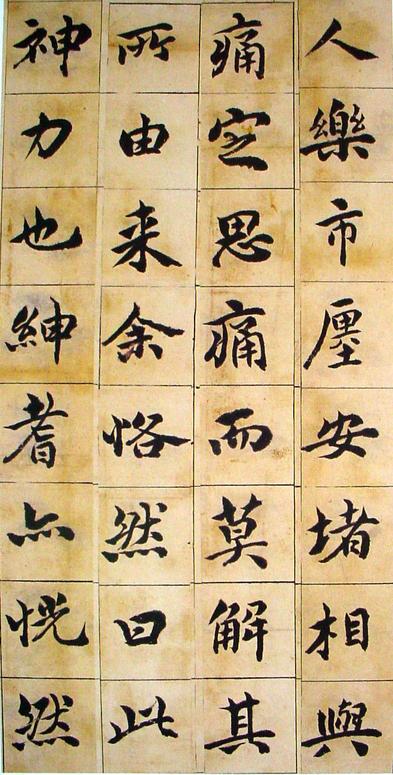 人樂市廛安堵相與
痛定思痛而莫解其
所由来余恪然曰此
神力也紳耆亦恍然